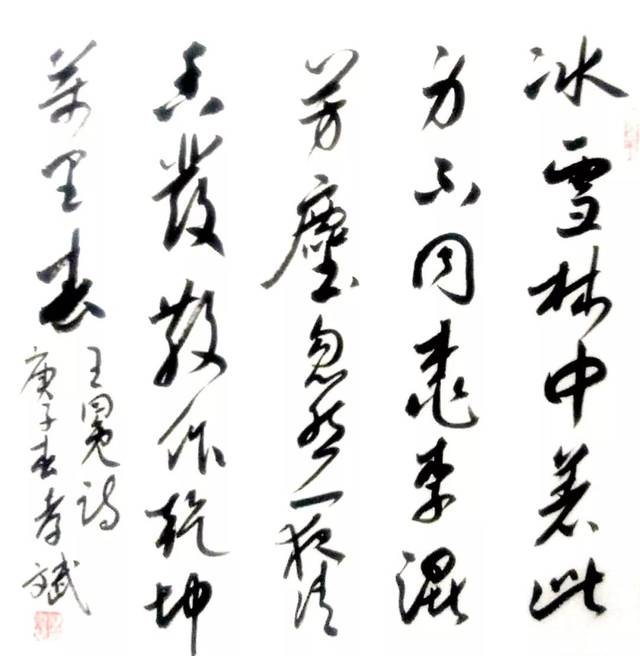 冰雪林中着此
身不同桃李混
芳塵忽然一夜清
香發散作乾坤
萬里春
王冕詩
庚子春孝斌